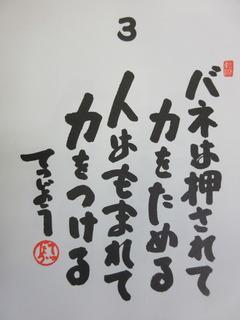 3
バネは押されて
力をためる
人はもまれて
力をつける
てつじょう